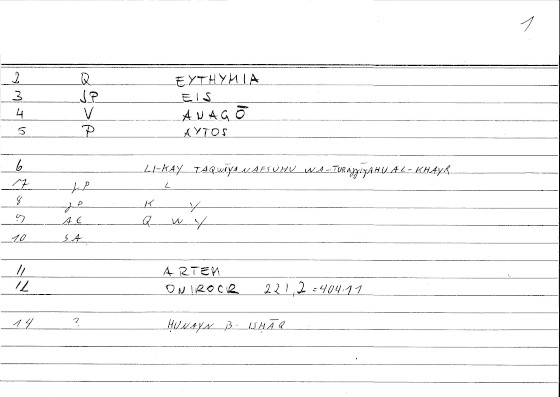 1
2 Q EYTHYMIA
3 JP EIS
4 V ANAGŌ
5 P AYTOS
6 LI-KAY TAQWĪYA NAFSUHU WA-TURAǦǦIYAHU AL-KHAYR
7 JP L
8 JP K Y
9 AC Q W Y
10 SA
11 ARTEM
12 ONIROCR 221,2 = 404.11
14 ? ḤUNAYN B- ISḤĀQ